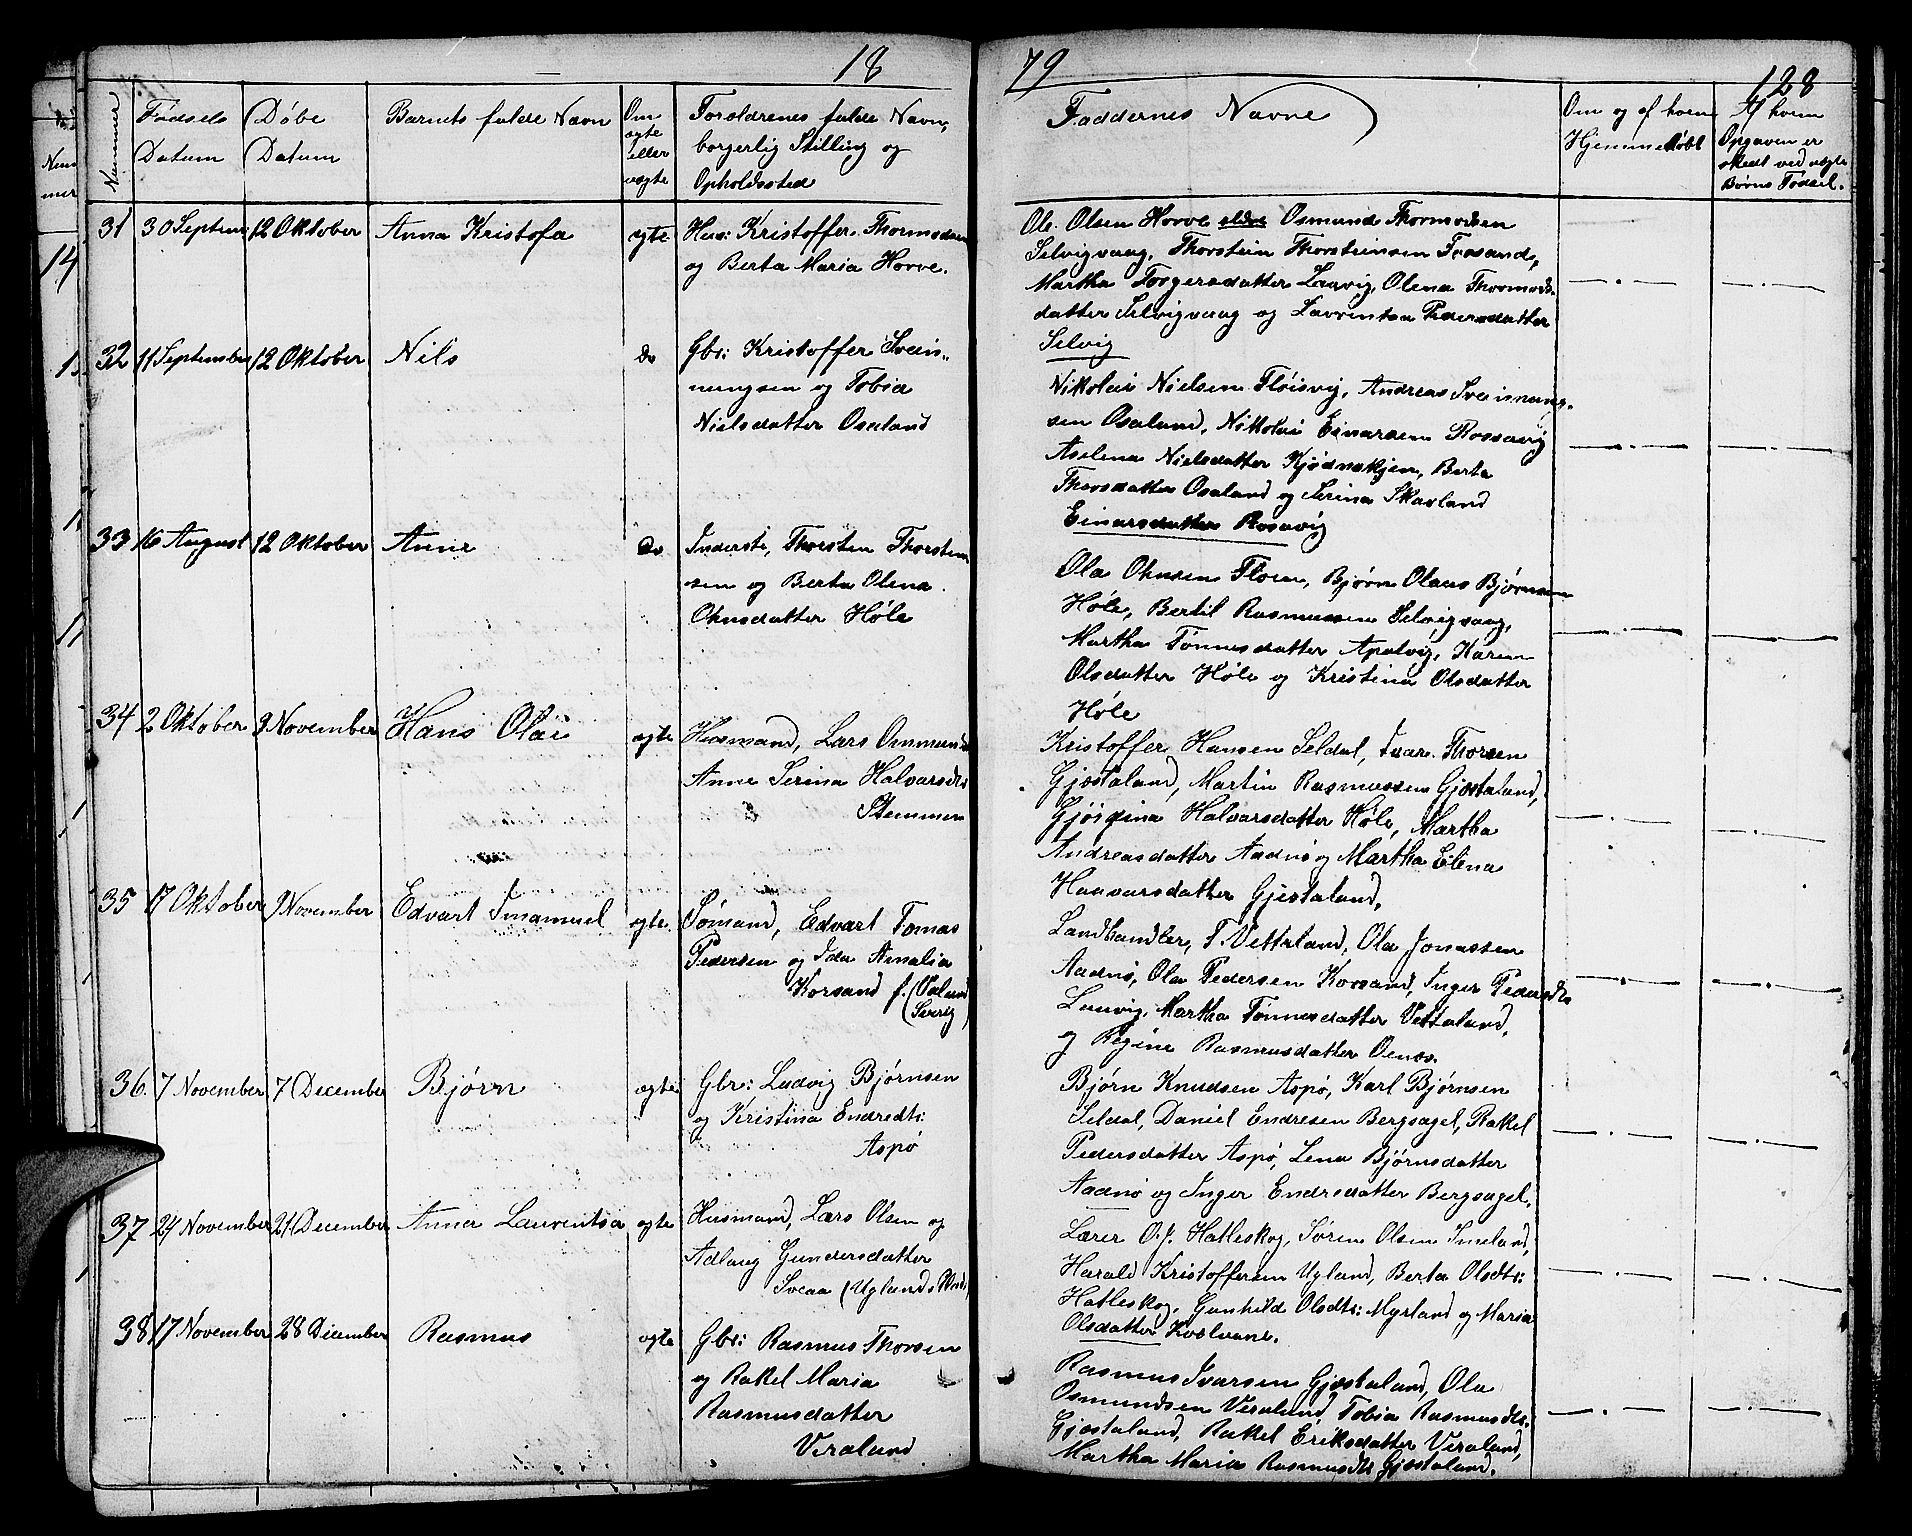 18 79 128
Nummer
Fødsels Datum
Døbe Datum
Barnets fulde Navn
Om ægte eller uægte
Forældrenes fulde Navn, borgerlig Stilling og Opholdssted
Faddernes Navne
Om og af hvem Hjemmedøbt
Af hvem Opgaven er skedt ved uægte Børns Fødsel.
31 30 Septem: 12 Oktober Anna Kristofa ægte Hus: Kristoffer Thormodsen
og Berta Maria Horve.
Ole Olsen Horve Osmund Thormodsen
Selvigvaag, Thorstein Thorsteinsen Fossand,
Martha Torgersdatter Lauvig, Olena Thormods-
datter Selvigvaag og Lavrentsa Pedersdatter
Selvig
32 11 September 12 Oktober Nils do Gbr: Kristoffer Svein-
nungsen og Tobia
Nielsdatter Osaland
Nikolai Nielsen Fløisvig, Andreas Sveinung-
sen Osaland, Nikolai Einarsen Rossavig
Aselena Nielsdatter Kjødnaskjen, Berte
Thorsdatter Osaland og Serina Skarland
Einarsdatter Rosavig
33 16 August 12 Oktober Anne do Inderste, Thorsten Thorsten-
sen og Berta Olena
Ohnsdatter Høle
Ola Ohnsen Floen, Bjørn Olaus Bjørnsen
Høle, Bertil Rasmussen Selvigvaag,
Martha Tønnesdatter Apalvig, Karen
Olsdatter Høle og Kristina Olsdatter
Høle
34 2 Oktober 9 November Hans Olai ægte Husmand, Lars Ommunds
Anne Serina Halvarsdtr
Stemmen
Kristoffer Hansen Seldal, Ivar Thorsen
Gjestaland, Martin Rasmussen Gjestaland,
Gjørgina Halvarsdatter Høle, Martha
Andreasdatter Aadnø og Martha Elena
Haavarsdatter Gjestaland,
35 17 Oktober 9 November Edvart Imanuel ægte Sømand, Edvart Tomas
Pedersen og Ida Amalia
Korsand f. (Øxlund
Sverig)
Landhandler, T. Vetrland, Ola Jonassen
Aadnø, Ola Pedersen Korsand, Inger Pedersdtr
Lauvig, Martha Tønnesdatter Vettaland,
og Regine Rasmusdatter Oenæs.
36. 7 November 7 December Bjørn ægte Gbr: Ludvig Bjørnsen
og Kristina Endredtr:
Aspø
Bjørn Knudsen Aspø, Karl Bjørnsen
Seldal, Daniel Endresen Bergsagel, Rakel
Pedersdatter Aspø, Lena Bjørnsdatter
Aadnø og Inger Endresdatter Bergsagel,
37 24 November 21 December Anna Laurentsa ægte Husmand, Lars Olsen og
Adlaug Gundersdatter
Sveaa (Uglands Plads)
Lærer O. J. Hatleskog, Søren Olsen Imeland,
Harald Kristoffersen Ugland, Berta Olsdtr:
Hatleskog, Gunhild Olsdtr: Myrland og Maria
Olsdatter
38 17 November 28 December Rasmus ægte Gbr: Rasmus Thorsen
og Rakel Maria
Rasmusdatter
Veraland
Rasmus Ivarsen Gjestaland, Ola
Osmundsen Veraland, Tobia Rasmusdtr.
Gjestaland, Rakel Eriksdatter Veraland,
Martha Maria Rasmusdtr Gjestaland.